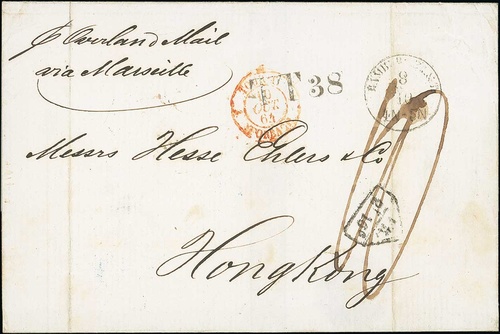 pr Overland Mail
via Marseille
38
8
64
Messrs Hesse Ehlers & Co
Hong Kong